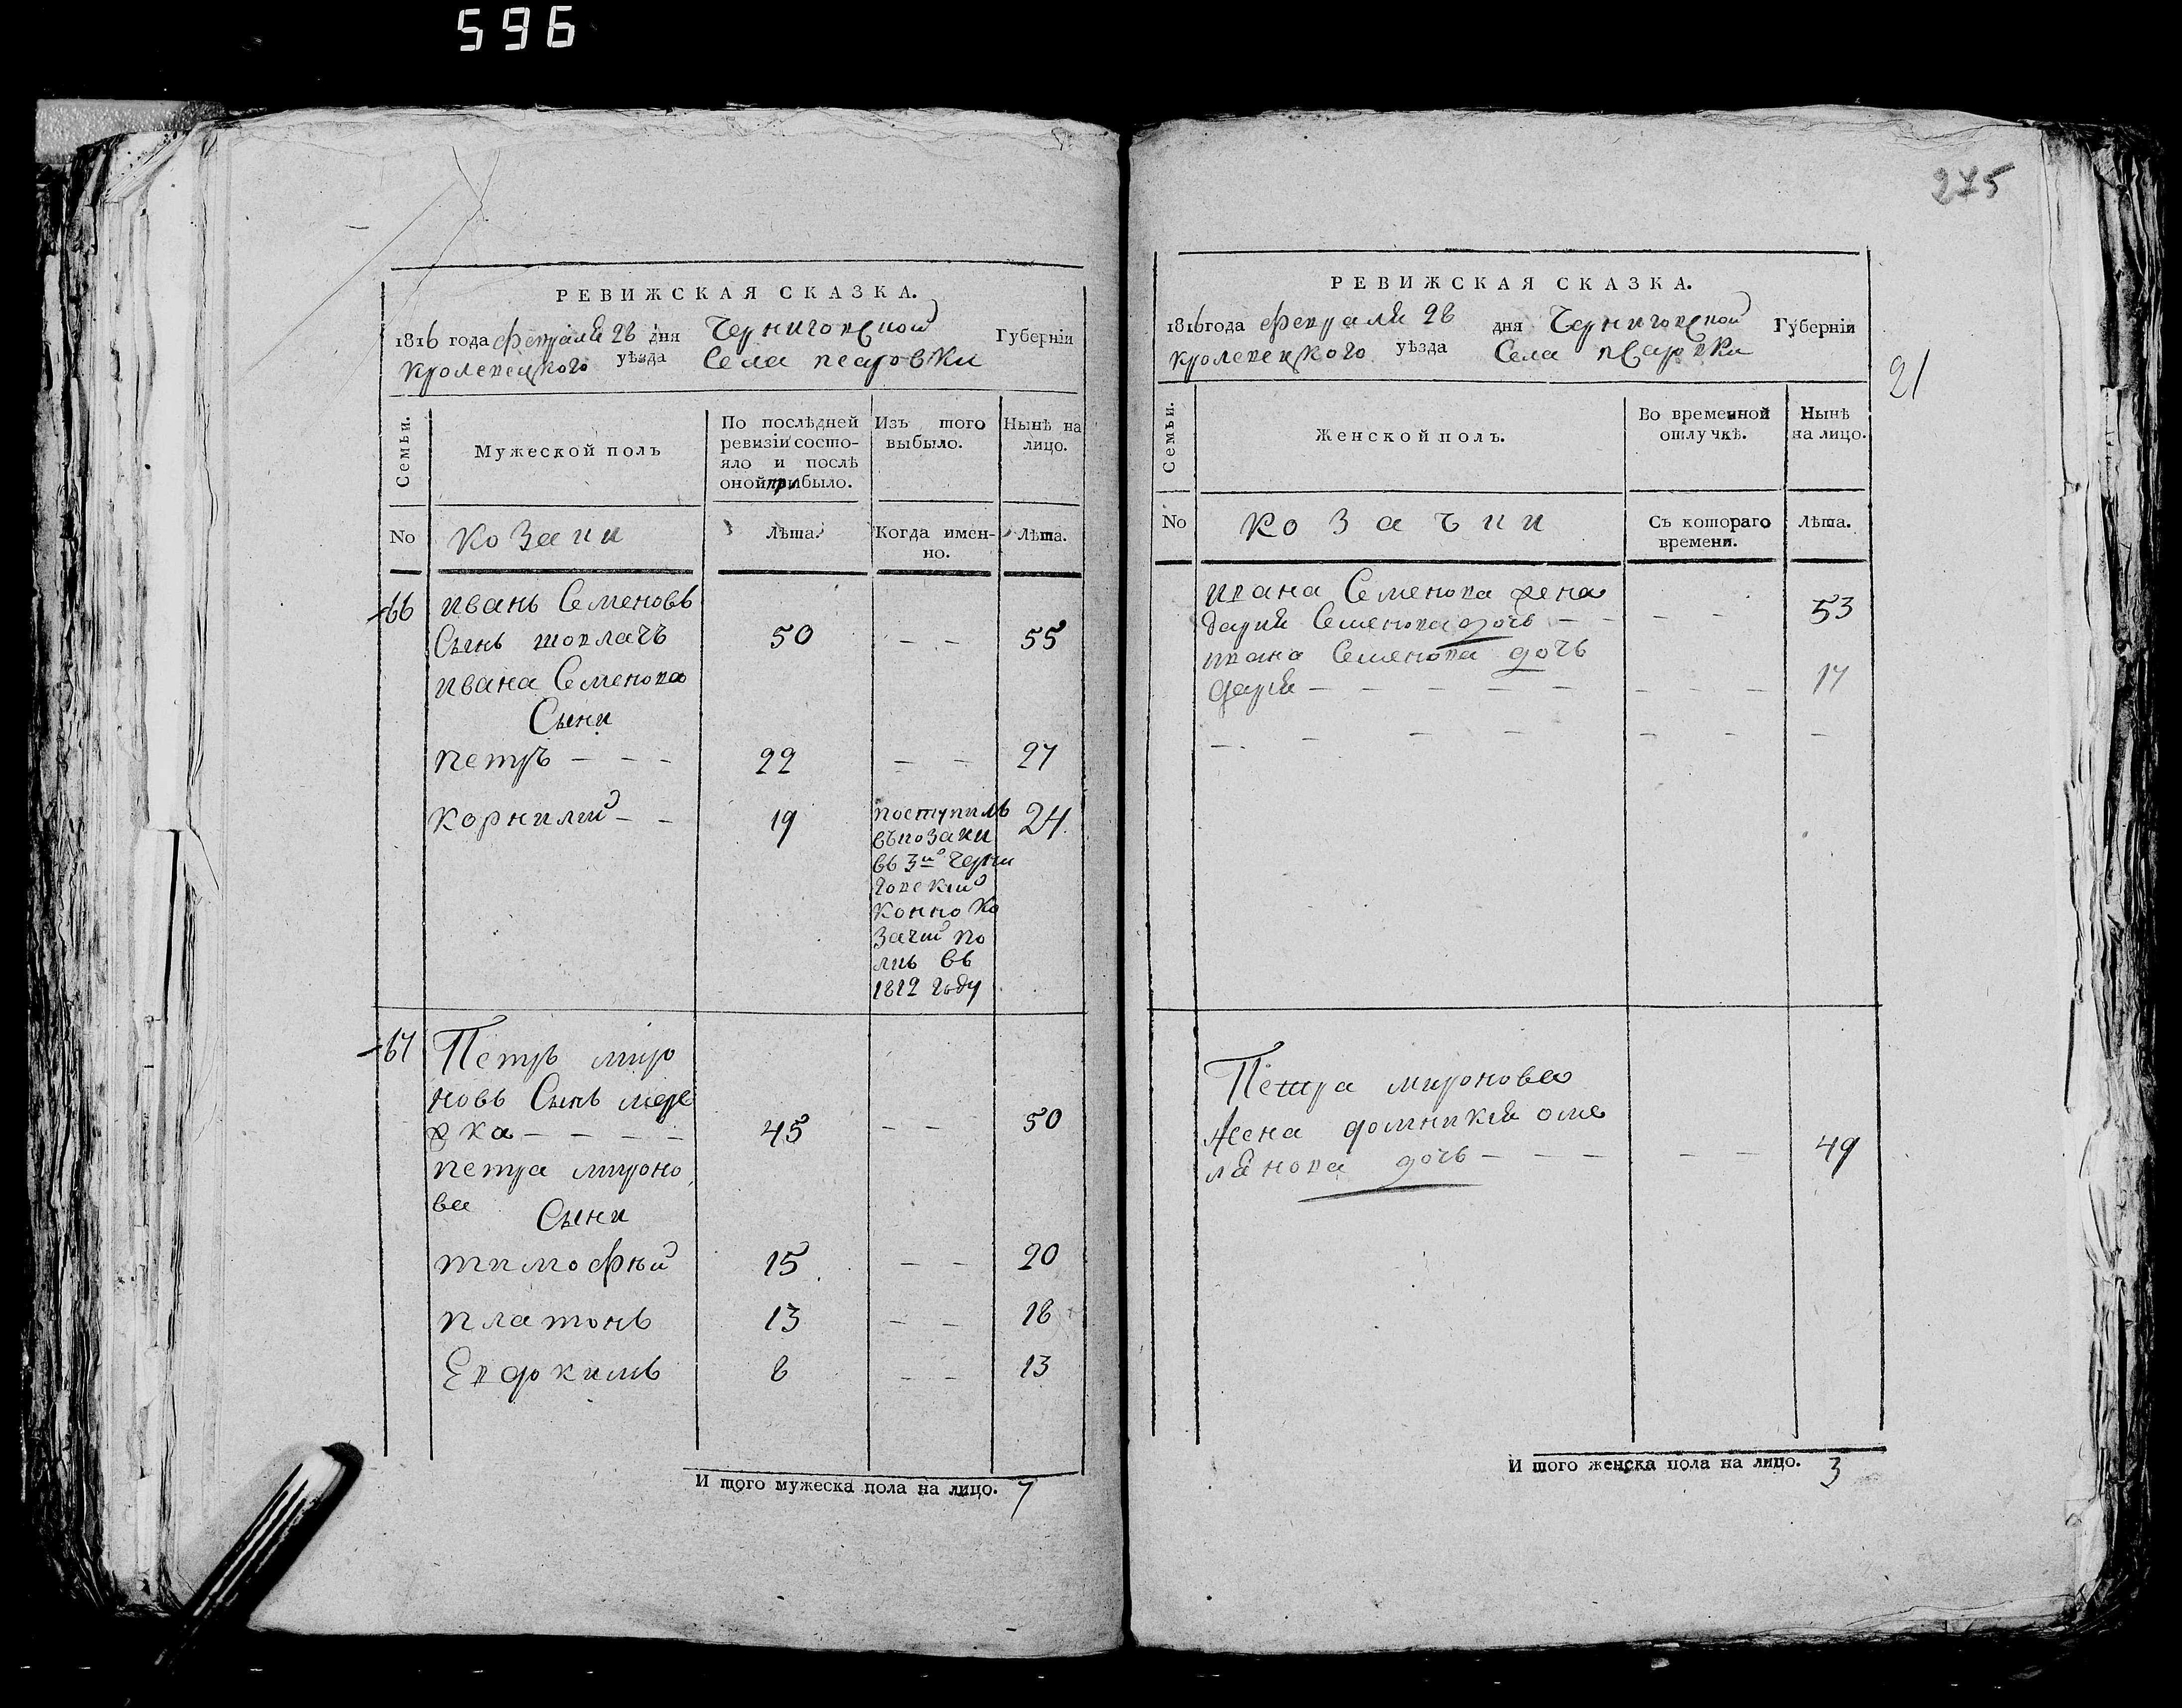 596
РЕВИЖСКАЯ СКАЗКА.
1816 года февраля 28 дня Черниговской Губерніи
кролевецкого уѣзда Села псаровки
Семьи.
Мужеской полъ
По послѣдней ревизіи состо-
яло и послѣ
оной прибыло.
Изъ того
выбыло.
Нынѣ на
лицо.
No
козаки
Лѣта.
Когда имен-
но.
Лѣта.
66 иванъ Семеновъ
Сынъ шовлачъ 50 — — 55
ивана Семенова
Сыни
петръ — — — 22 — — 27
корнилий — — 19 24
поступилъ
въ козаки
въ 3й Черни
говский
конно ко
зачий по
лкъ въ
1812 году
67 Петръ миро
новъ Сынъ мере
жка — — — — 45 — — 50
петра мироно
ва Сыни
тимофѣй 15 — — 20
платонъ 13 — — 18
Евдокимъ 8 — — 13
И того мужеска пола на лицо. 7
275
РЕВИЖСКАЯ СКАЗКА.
1816 года февраля 28 дня Черниговской Губерніи
кролевецкого уѣзда Села псаровки
21
Семьи.
Женской полъ.
Во временной
отлучкѣ.
Нынѣ
на лицо.
No
козачки
Съ котораго
времени.
Лѣта.
ивана Семенова жена
дария Семенова дочь — — — — 53
ивана Семенова дочь
дария — — — — — — — — 17
— — — — — — — —
Петра миронова
жена домникия оме
лянова дочь — — — — — 49
И того женска пола на лицо. 3